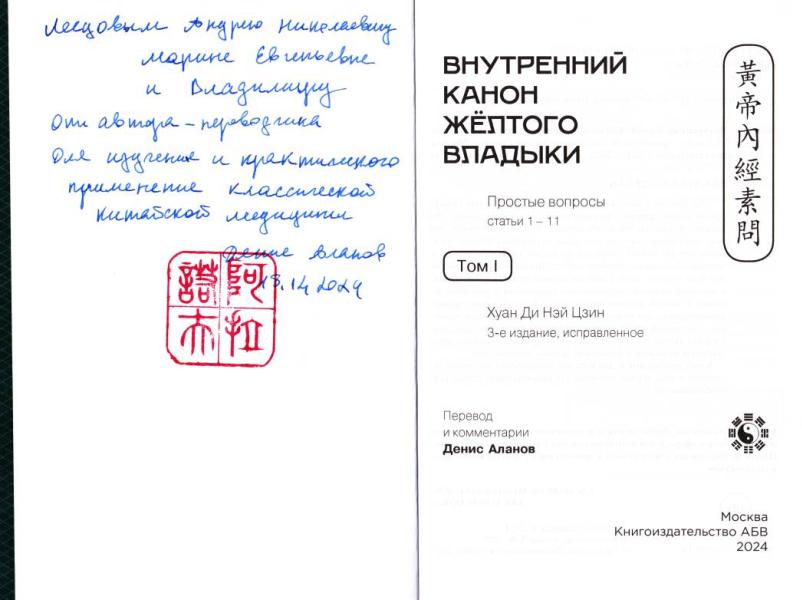 Лесцовым Андрею Николаевичу
Марине Евгеньевне
и Владимиру
От автора – переводчика
Для изучения и практического
применение классической
китайской медицины
Денис Аланов
2024
阿拉
ВНУТРЕННИЙ
КАНОН
ЖЁЛТОГО
ВЛАДЫКИ
Простые вопросы
статьи 1 – 11
Том I
Хуан Ди Нэй Цзин
3-е издание, исправленное
Перевод
и комментарии
Денис Аланов
Москва
Книгоиздательство АБВ
2024
黃帝內經素問